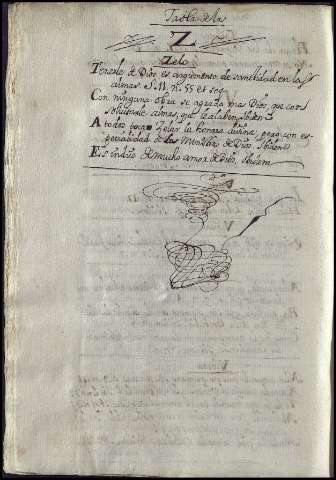 Tabla de la
Z
Zelo
Tenerle de Dios es argumento de santidad en las
almas. S. 11. n. 55 et seq.
Con ninguna obra se agrada mas Dios, que con
almas, que le alaben. Ibiden
A todos toca Zelar la honrra divina, pero con es-
pecialidad a los Ministros de Dios. Ibiden
Es indicio de mucho amor de Dios. Ibidem